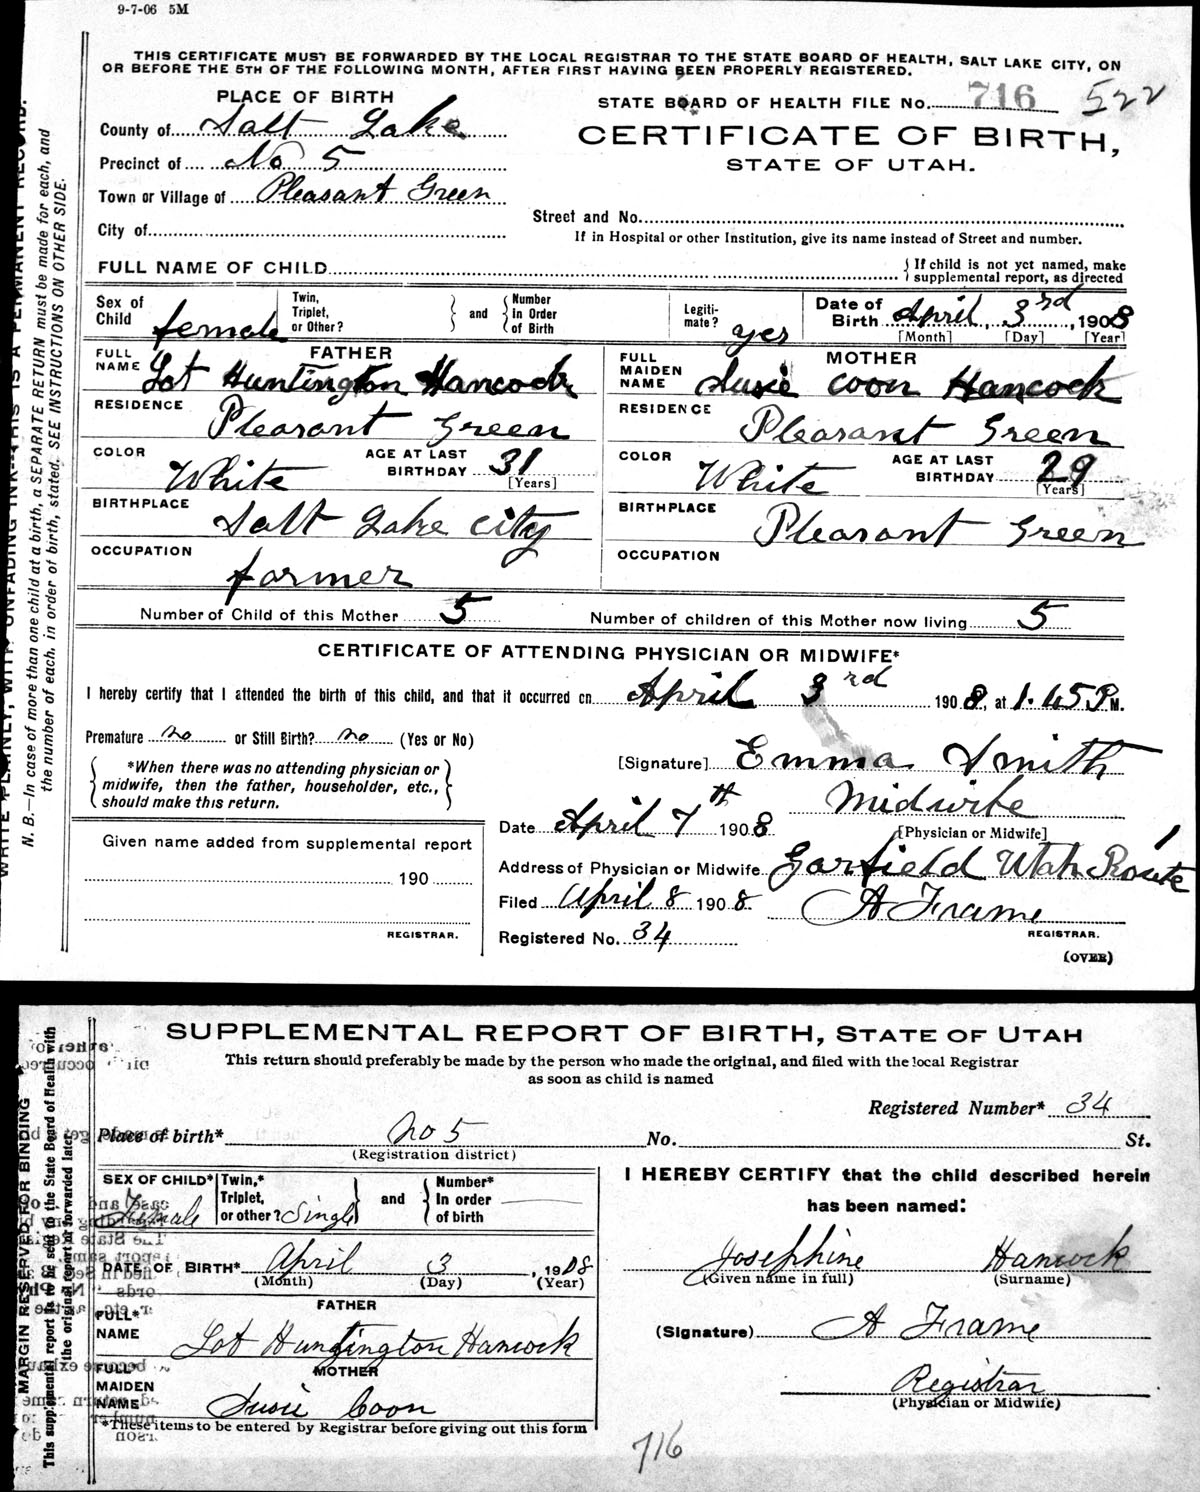 9-7-06 5M
THIS CERTIFICATE MUST BE FORWARDED BY THE LOCAL REGISTRAR TO THE STATE BOARD OF HEALTH, SALT LAKE CITY, ON
OR BEFORE THE 5TH OF THE FOLLOWING MONTH, AFTER FIRST HAVING BEEN PROPERLY REGISTERED.
PLACE OF BIRTH
STATE BOARD OF HEALTH FILE No. 716 522
County of Salt Lake
CERTIFICATE OF BIRTH,
STATE OF UTAH.
Precinct of No 5
Town or Village of Pleasant Green
Street and No.
City of
If in Hospital or other Institution, give its name instead of Street and number.
FULL NAME OF CHILD
If child is not yet named, make
supplemental report, as directed
Sex of Child female
Twin, Triplet, or Other?
and
Number In Order of Birth
Legitimate? yes
Date of Birth April, 3rd, 1908
[Month] [Day] [Year]
FATHER
FULL NAME Lot Huntington Hancock
MOTHER
FULL MAIDEN NAME Susie Coon Hancock
RESIDENCE Pleasant Green
RESIDENCE Pleasant Green
COLOR White
AGE AT LAST BIRTHDAY 31 [Years]
COLOR White
AGE AT LAST BIRTHDAY 29 [Years]
BIRTHPLACE Salt Lake City
BIRTHPLACE Pleasant Green
OCCUPATION farmer
OCCUPATION
Number of Child of this Mother 5
Number of children of this Mother now living 5
CERTIFICATE OF ATTENDING PHYSICIAN OR MIDWIFE*
I hereby certify that I attended the birth of this child, and that it occurred on April 3rd 1908, at 1.45 P M.
Premature no or Still Birth? no (Yes or No)
*When there was no attending physician or
midwife, then the father, householder, etc.,
should make this return.
[Signature] Emma Smith
Midwife
Date April 7th 1908
[Physician or Midwife]
Given name added from supplemental report
190
REGISTRAR.
Address of Physician or Midwife Garfield Utah Route 1
Filed April 8 1908 A Frame
REGISTRAR.
Registered No. 34
(OVER)
WRITE PLAINLY, WITH UNFADING INK--THIS IS A PERMANENT RECORD.
N. B.—In case of more than one child at a birth, a SEPARATE RETURN must be made for each, and
the number of each, in order of birth, stated. SEE INSTRUCTIONS ON OTHER SIDE.
SUPPLEMENTAL REPORT OF BIRTH, STATE OF UTAH
This return should preferably be made by the person who made the original, and filed with the local Registrar
as soon as child is named
Registered Number* 34
Place of birth* No 5 No. St.
(Registration district)
SEX OF CHILD* Female
Twin,* Triplet, or other? Single
and
Number* In order of birth
I HEREBY CERTIFY that the child described herein
has been named:
DATE OF BIRTH* April 3, 1908
(Month) (Day) (Year)
Josephine Hancock
(Given name in full) (Surname)
FATHER
FULL* NAME Lot Huntington Hancock
(Signature) A Frame
MOTHER
FULL MAIDEN NAME Susie Coon
Registrar
(Physician or Midwife)
*These items to be entered by Registrar before giving out this form
716
MARGIN RESERVED FOR BINDING
This supplemental report is to be sent to the State Board of Health with
the original report if forwarded later.